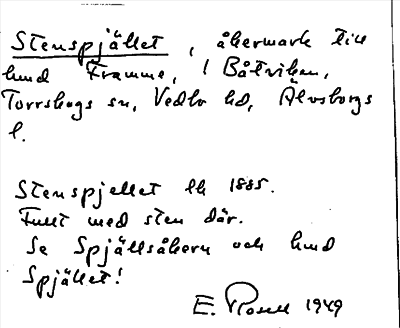 Stenspjället, åkermark till
hmd Framme, i Båtviken,
Torrskogs sn, Vedbo hd, Älvsborgs
l.
Stenspjellet lk 1885.
Fullt med sten där.
Se Spjällsåkern och hmd
Spjället!
E. Rosell 1949